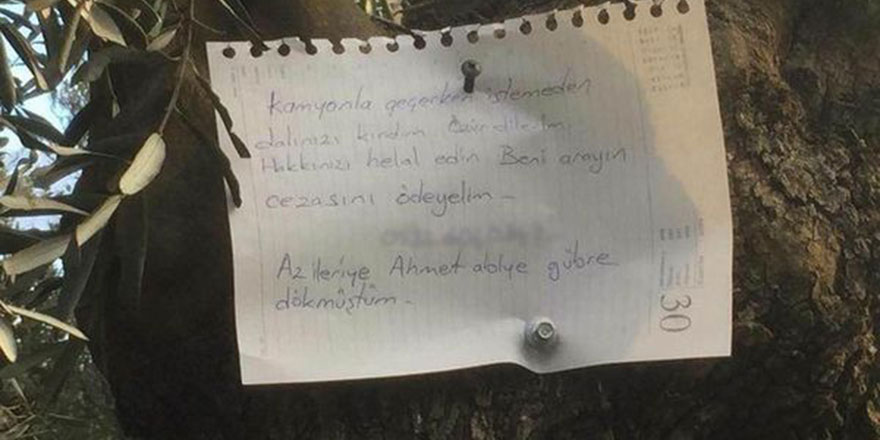 Kamyonla geçerken istemeden
dalınızı kırdım Özür dilerim,
Hakkınızı helal edin Beni arayın
cezasını ödeyelim -
Az ileriye Ahmet abiye gübre
dökmüştüm -
30